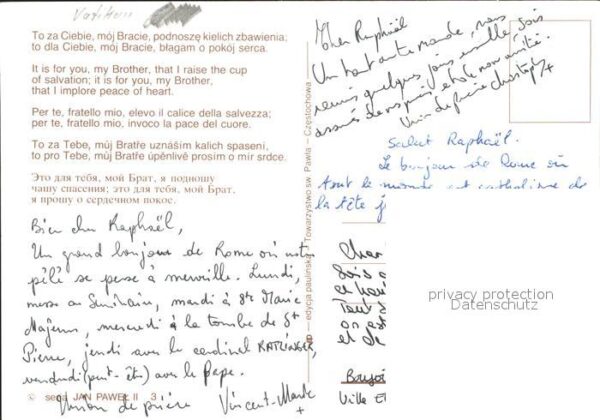 Vatikan
To za Ciebie, mój Bracie, podnoszę kielich zbawienia;
to dla Ciebie, mój Bracie, błagam o pokój serca.
It is for you, my Brother, that I raise the cup
of salvation; it is for you, my Brother,
that I implore peace of heart.
Per te, fratello mio, elevo il calice della salvezza;
per te, fratello mio, invoco la pace del cuore.
To za Tebe, můj Bratře uznáším kalich spasení,
to pro Tebe, můj Bratře úpěnlivě prosím o mír srdce.
Это для тебя, мой Брат, я подношу
чашу спасения; это для тебя, мой Брат,
я прошу о сердечном покое.
Bien cher Raphaël,
Un grand bonjour de Rome où notre
pélé se passe à merveille. Lundi,
messe au Séminaire, mardi à Ste Marie
Majeure, mercredi à la tombe de St
Pierre, jeudi avec le cardinal RATZINGER,
vendredi (peut-être) avec le Pape.
Union de prière Vincent-Marie +
© seria JAN PAWEŁ II 3
edycja paulińska Towarzystwo św. Pawła – Częstochowa
Cher Raphaël
Un haut autre monde, nous
reunis quelques jours ensemble, sois
assuré de ma prière et de mon amitié.
Union de prière Christophe +
Salut Raphaël.
Le bonjour de Rome où
tout le monde est catholique de
la tête
Cher
Sois
Tout
on est
et de
Bonjour
Ville
privacy protection
Datenschutz